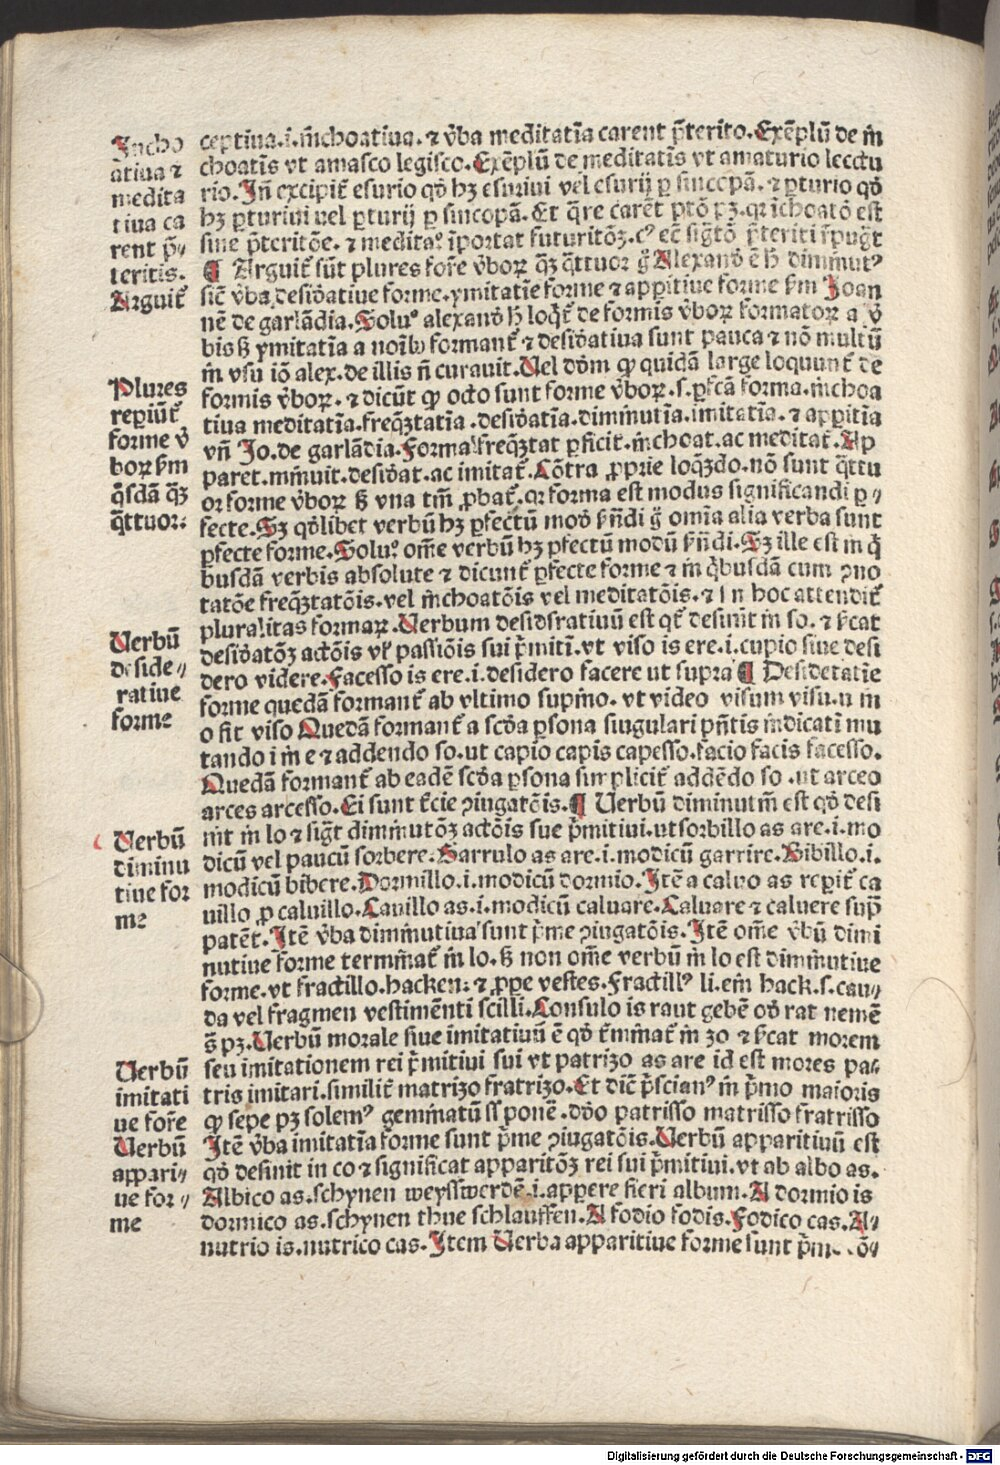 Incho
atiua ⁊
medita
tiua ca
rent p̄⸗
teritis.
Arguit᷑
Plures
repiūt᷑
forme v̓
boꝝ km̄
q̄sdā qꝫ
q̄ttuor:
Verbū
deside⸗
ratiue
forme
Verbū
diminu
tiue for
me
Verbū
imitati
ue for̄e
Verbū
appari⸗
ue for⸗
me
ceptiua.i.īnchoatiua.⁊ v̓ba meditatīa carent p̄terito.Exēplū de in
choatīs vt amasco legisco.Exēplū de meditatīs vt amaturio lecctu
rio.Iñ excipit᷑ esurio qd̓ hꝫ esuriui vel esurij ꝑ sincopā.⁊ ꝑturio qd̓
hꝫ ꝑturiui uel ꝑturij ꝑ sincopā.Et q̄re carēt ptō pꝫ.qꝛ īchoatō est
sine p̄teritōe.⁊ medita. īportat futuritōꝫ.
¶ Arguit᷑ sūt plures for̄e v̓boꝝ qꝫ q̄ttuor g̊ Alexand̓ ē
sic̄ v̓ba desid̓atiue forme.ymitatīe forme ⁊ apꝑitiue forme km̄ Joan
nē de garlādia.Soluꝰ alexand̓ loqt᷑ de formis v̓boꝝ formatoꝝ a v̓
bis ß ymitatīa a noīb formant᷑ ⁊ desid̓atiua sunt pauca ⁊ nō multū
in vsu iō alex.de illis ñ curauit.Uel dōm ꝙ quidā large loquunt᷑ de
formis v̓boꝝ.⁊ dicūt ꝙ octo sunt forme v̓boꝝ.s.ꝑfcā forma.incho
tiua meditatīa.freqꝫtatīa.desid̓atīa.diminutīa.imitatīa.⁊ apꝑitīa
vñ Jo.de garlādia.Forma freqꝫtat ꝑficit.inchoat.ac meditat.Ap
paret.minuit.desid̓at.ac imitat᷑.Cōtra ꝓprie loqꝫdo.nō sunt q̄ttu
or forme v̓boꝝ ß vna tm̄ ꝓbat᷑.qꝛ forma est modus significandi ꝑ⸗
fecte.Sꝫ qd̓libet verbū hꝫ ꝑfectū mod̓ sñdi g̊ omīa alia verba sunt
ꝑfecte forme.Soluꝰ om̄e verbū hꝫ ꝑfectū modū sñdi.Sꝫ ille est in q̓
busdā verbis absolute ⁊ dicunt᷑ ꝑfecte forme ⁊ in q̓busdā cum ꝯno
tatōe freqꝫtatōis.vel inchoatōis vel meditatōis.⁊ in hoc attendit᷑
pluralitas formaꝝ.Verbum desidsratiuū est qt᷑ desinit in so.⁊ scat
desid̓atōꝫ actōis vl̓ passiōis sui p̄miti.vt viso is ere.i.cupio siue desi
dero videre.Facesso is ere.i.desidero facere ut supra ¶ Desidetatie
forme quedā formant᷑ ab vltimo supīno.vt video visum visu.u in
o fit viso Quedā formant᷑ a scd̓a ꝑsona singulari pñtis indicati mu
tando i in e ⁊ addendo so.ut capio capis capesso.facio facis facesso.
Quedā formant᷑ ab eadē scd̓a ꝑsona simplicit᷑ addēdo so .ut arceo
arces arcesso.Ei sunt t᷑cie ꝯiugatōis.¶ Verbū diminutiū est qd̓ desi
nit in lo ⁊ sigt᷑ diminutōꝫ actōis sue p̄mitiui.ut sorbillo as are.i.mo
dicū vel paucū sorbere.Garrulo as are.i.modicū garrire.Bibillo.i.
modicū bibere.Dormillo.i.modicū dormio.Itē a caluo as repit᷑ ca
uillo ꝓ caluillo.Cauillo as.i.modicū caluare.Caluare ⁊ caluere sup̄
patēt.Itē v̓ba diminutiua sunt p̄me ꝯiugatōis.Itē om̄e v̓bū dimi
nutiue forme terminat᷑ in lo.ß non om̄e verbū in lo est diminutiue
forme.vt fractillo.hacken:⁊ ꝓpe vestes.Fractillꝰ li.em̄ hack.s.cau⸗
da vel fragmen vestimēnti scilli.Consulo is raut gebē od̓ rat nemē
s̄ pꝫ.Verbū morale siue imitatiuū ē qd̓ t᷑minat᷑ in zo ⁊ scat morem
seu imitationem rei p̄mitiui sui vt patrizo as are id est mores pa⸗
tris imitari.similit᷑ matrizo fratrizo.Et dic̄ p̄scianꝰ in p̄mo maioris
ꝙ sepe pꝫ solemꝰ geminatū ss ponē.vōo patrisso matrisso fratrisso
Itē v̓ba imitatīa forme sunt p̄me ꝯiugatōis.Verbū apparitiuū est
qd̓ desinit in co ⁊ significat apparitōꝫ rei sui p̄mitiui.vt ab albo as.
Albico as.schynen weysswerdē.i.apꝑere fieri album.A dormio is
dormico as.schynen thue schlauffen.A fodio fodis.Fodico cas.A⸗
nutrio is.nutrico cas.Item Verba apparitiue forme sunt
Digitalisierung gefördert durch die Deutsche Forschungsgemeinschaft - DFG